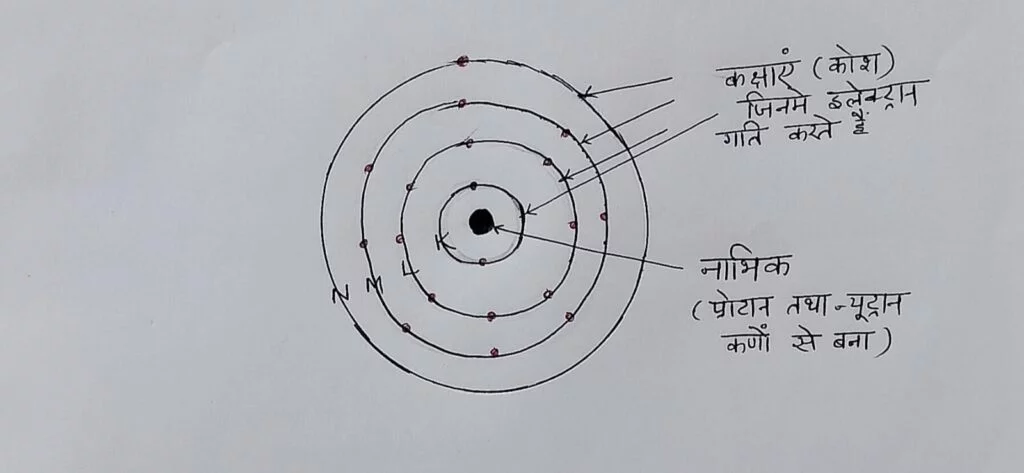 कक्षाएं (कोश)
जिनमे इलेक्ट्रान
गति करते हैं
K
L
M
N
नाभिक
(प्रोटान तथा न्यूट्रान
कणों से बना)